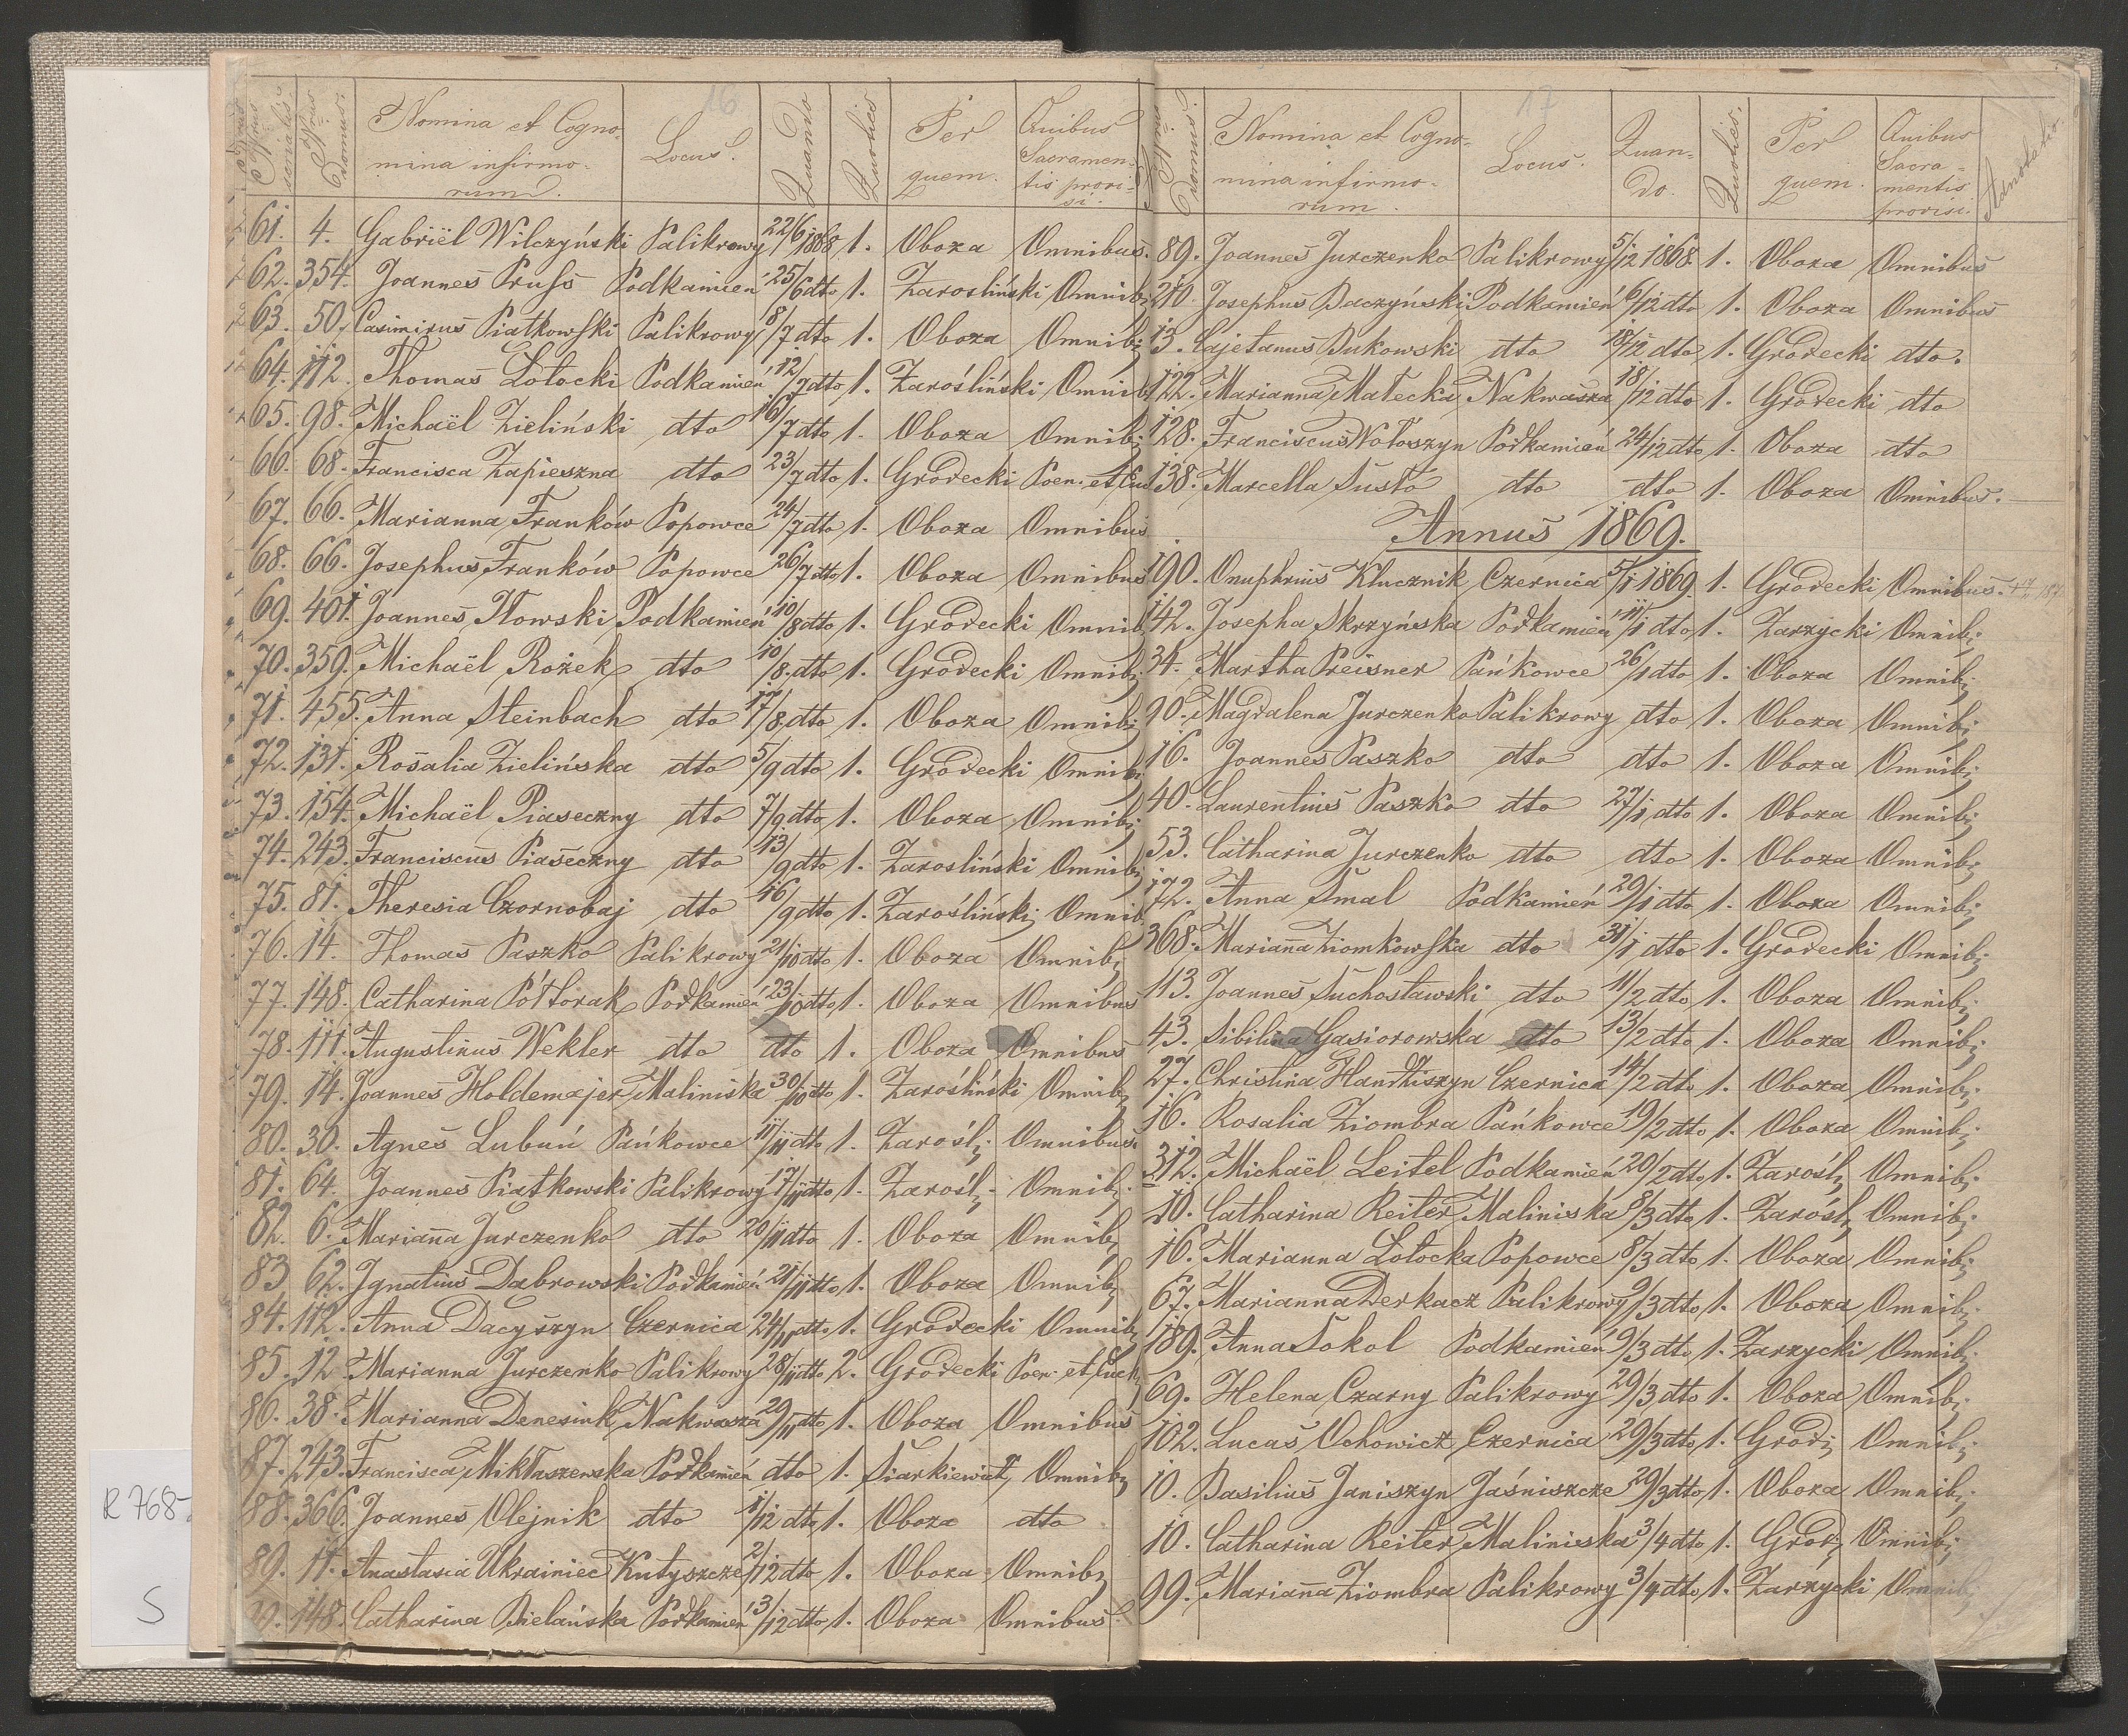 16
Nrus serialis. Nrus Domus. Nomina et Cognomina infirmorum. Locus. Quando Quoties Per quem. Quibus Sacramentis provisi.
61. 4. Gabriël Wilczyński Palikrowy 22/6 1868 1. Oboza Omnibus.
62. 354. Joannes Pruss Podkamień 25/6 dto 1. Zarosliński Omnib;
63. 50. Casimirus Piatkowski Palikrowy 8/7 dto 1. Oboza Omnib;
64. 112. Thomas Lotocki Podkamień 12/7 dto 1. Zarośliński Omnib;
65. 98. Michaël Zieliński dto 16/7 dto 1. Oboza Omnib;
66. 68. Francisca Zapieszna dto 23/7 dto 1. Grodecki Poen. et Eu
67. 66. Marianna Franków Popowce 24/7 dto 1. Oboza Omnibus
68. 66. Josephus Franków Popowce 26/7 dto 1. Oboza Omnibus
69. 401. Joannes Iłowski Podkamień 10/8 dto 1. Grodecki Omnib;
70. 359. Michaël Rożek dto 10/8. dto 1. Grodecki Omnib;
71. 455. Anna Steinbach dto 17/8. dto 1. Oboza Omnib;
72. 131. Rosalia Zielińska dto 5/9 dto 1. Grodecki Omnib;
73. 154. Michaël Piaseczny dto 7/9 dto 1. Oboza Omnib;
74. 243. Franciscus Piaseczny dto 13/9 dto 1. Zarosliński Omnib;
75. 81. Theresia Czornobaj dto 16/9 dto 1. Zarośliński Omnib
76. 14. Thomas Paszko Palikrowy 21/10 dto 1. Oboza Omnib;
77. 148. Catharina Półtorak Podkamień 23/10 dto 1. Oboza Omnibus
78. 111. Augustinus Wekler dto dto 1. Oboza Omnibus
79. 14. Joannes Holdemajer Maliniska 30/10 dto 1. Zarośliński Omnib;
80. 30. Agnes Lubuń Pańkowce 11/11 dto 1. Zarośl; Omnibus.
81. 64. Joannes Piatkowski Palikrowy 17/11 dto 1. Zarośl; Omnib;
82. 6. Mariana Jurczenko dto 20/11 dto 1. Oboza Omnib;
83 62. Ignatius Dabrowski Podkamień 21/11 dto 1. Oboza Omnib;
84. 112. Anna Dacyszyn Czernica 24/11 dto 1. Grodecki Omnib;
85. 12. Marianna Jurczenko Palikrowy 28/11 dto 2. Grodecki Poen. et Euch;
86. 38. Marianna Denesiuk Nakwasza 29/11 dto 1. Oboza Omnibus
87. 243. Francisca Mikłaszewska Podkamień dto 1. Siarkiewicz Omnib;
88. 366. Joannes Olejnik dto 1/12 dto 1. Oboza dto
89. 11. Anastasia Ukrainiec Kutyszcze 2/12 dto 1. Oboza Omnib;
148. Catharina Bielańska Podkamień 3/12 dto 1. Oboza Omnibus
17
Nrus Domus. Nomina et Cognomina infirmorum. Locus. Quando. Quoties. Per quem. Quibus Sacramentis provisi. Adnotatio.
89. Joannes Jurczenko Palikrowy 5/12 1868. 1. Oboza Omnibus
210. Josephus Baczyński Podkamień 6/12 dto 1. Oboza Omnibus
13. Cajetanus Bukowski dto 18/12 dto 1. Grodecki dto.
122. Marianna Małecka Nakwasza 18/12 dto 1. Grodecki dto
128. Franciscus Wołoszyn Podkamień 24/12 dto 1. Oboza dto
138. Marcella Susło dto dto 1. Oboza Omnibus.
Annus 1869.
190. Onuphrius Klucznik Czernica 5/1 1869 1. Grodecki Omnibus.
142. Josepha Skrzyńska Podkamień 11/1 dto 1. Zarzycki Omnib;
34. Martha Preisner Pańkowce 26/1 dto 1. Oboza Omnib;
90. Magdalena Jurczenko Palikrowy dto 1. Oboza Omnib;
16. Joannes Paszko dto dto 1. Oboza Omnib;
40. Laurentius Paszko dto 27/1 dto 1. Oboza Omnib;
53. Catharina Jurczenko dto dto 1. Oboza Omnib;
172. Anna Smal Podkamień 29/1 dto 1. Oboza Omnib;
368. Mariana Ziomkowska dto 31/1 dto 1. Grodecki Omnib;
113. Joannes Suchosławski dto 11/2 dto 1. Oboza Omnib;
43. Sibilina Gasiorowska dto 13/2 dto 1. Oboza Omnib;
27. Christina Handziszyn Czernica 14/2 dto 1. Oboza Omnib;
16. Rosalia Ziombra Pańkowce 19/2 dto 1. Oboza Omnib;
312. Michaël Leitel Podkamień 20/2 dto 1. Zarośl; Omnib;
10. Catharina Reiter Maliniska 8/3 dto 1. Zarośl; Omnib;
16. Marianna Lotocka Popowce 8/3 dto 1. Oboza Omnib;
67. Marianna Derkacz Palikrowy 9/3 dto 1. Oboza Omnib;
189. Anna Sokol Podkamień 9/3 dto 1. Zarzycki Omnib;
69. Helena Czarny Palikrowy 29/3 dto 1. Oboza Omnib;
102. Lucas Ochowicz Czernica 29/3 dto 1. Grod; Omnib;
10. Basilius Janiszyn Jaśniszcze 29/3 dto 1. Oboza Omnib;
10. Catharina Reiter Maliniska 3/4 dto 1. Grod; Omnib;
99. Mariana Ziombra Palikrowy 3/4 dto 1. Zarzycki Omnib;
R 768-
S